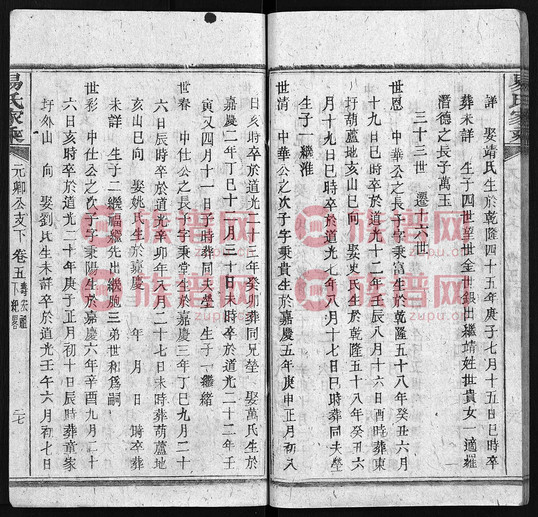 詳　娶靖氏生於乾隆四十五年庚子七月十五日巳時卒
葬未詳　生子四世望世金世銀出繼靖姓世貴女一適羅
潛德之長子萬玉
三十三世　遷十六世
世恩　中華公之長子字秉富生於乾隆五十八年癸丑六月
十九日　時卒於道光十二年壬辰八月十六日酉時葬東
圩葫蘆地亥山巳向　娶史氏生於乾隆五十八年癸丑六
月十九日巳時卒於道光七年八月十七日巳時葬同夫塋
生子一繼淮
世清　中華公之次子字秉貴生於嘉慶五年庚申正月初八
日亥時卒於道光二十三年癸卯葬同兄塋　娶萬氏生於
嘉慶二年丁巳十月三十日未時卒於道光二十二年壬
寅又四月十一日子時葬同夫塋　生子一繼緒
世春　中仕公之長子字秉堂生於嘉慶三年丁巳九月二十
六日辰時卒於道光辛卯年八月二十七日未時葬葫蘆地
亥山巳向　娶姚氏生於嘉慶　年　月　日　時卒葬
未詳　生子二繼福繼先出繼胞三弟世和為嗣
世彩　中仕公之次子字秉陽生於嘉慶六年辛酉九月二十
六日亥時卒於道光二十年庚子正月初十日辰時葬童家
圩外山　向　娶劉氏生未詳卒於道光壬午六月初七日
易氏家乘
元卿公支下　卷五
族譜網
www.zupu.cn